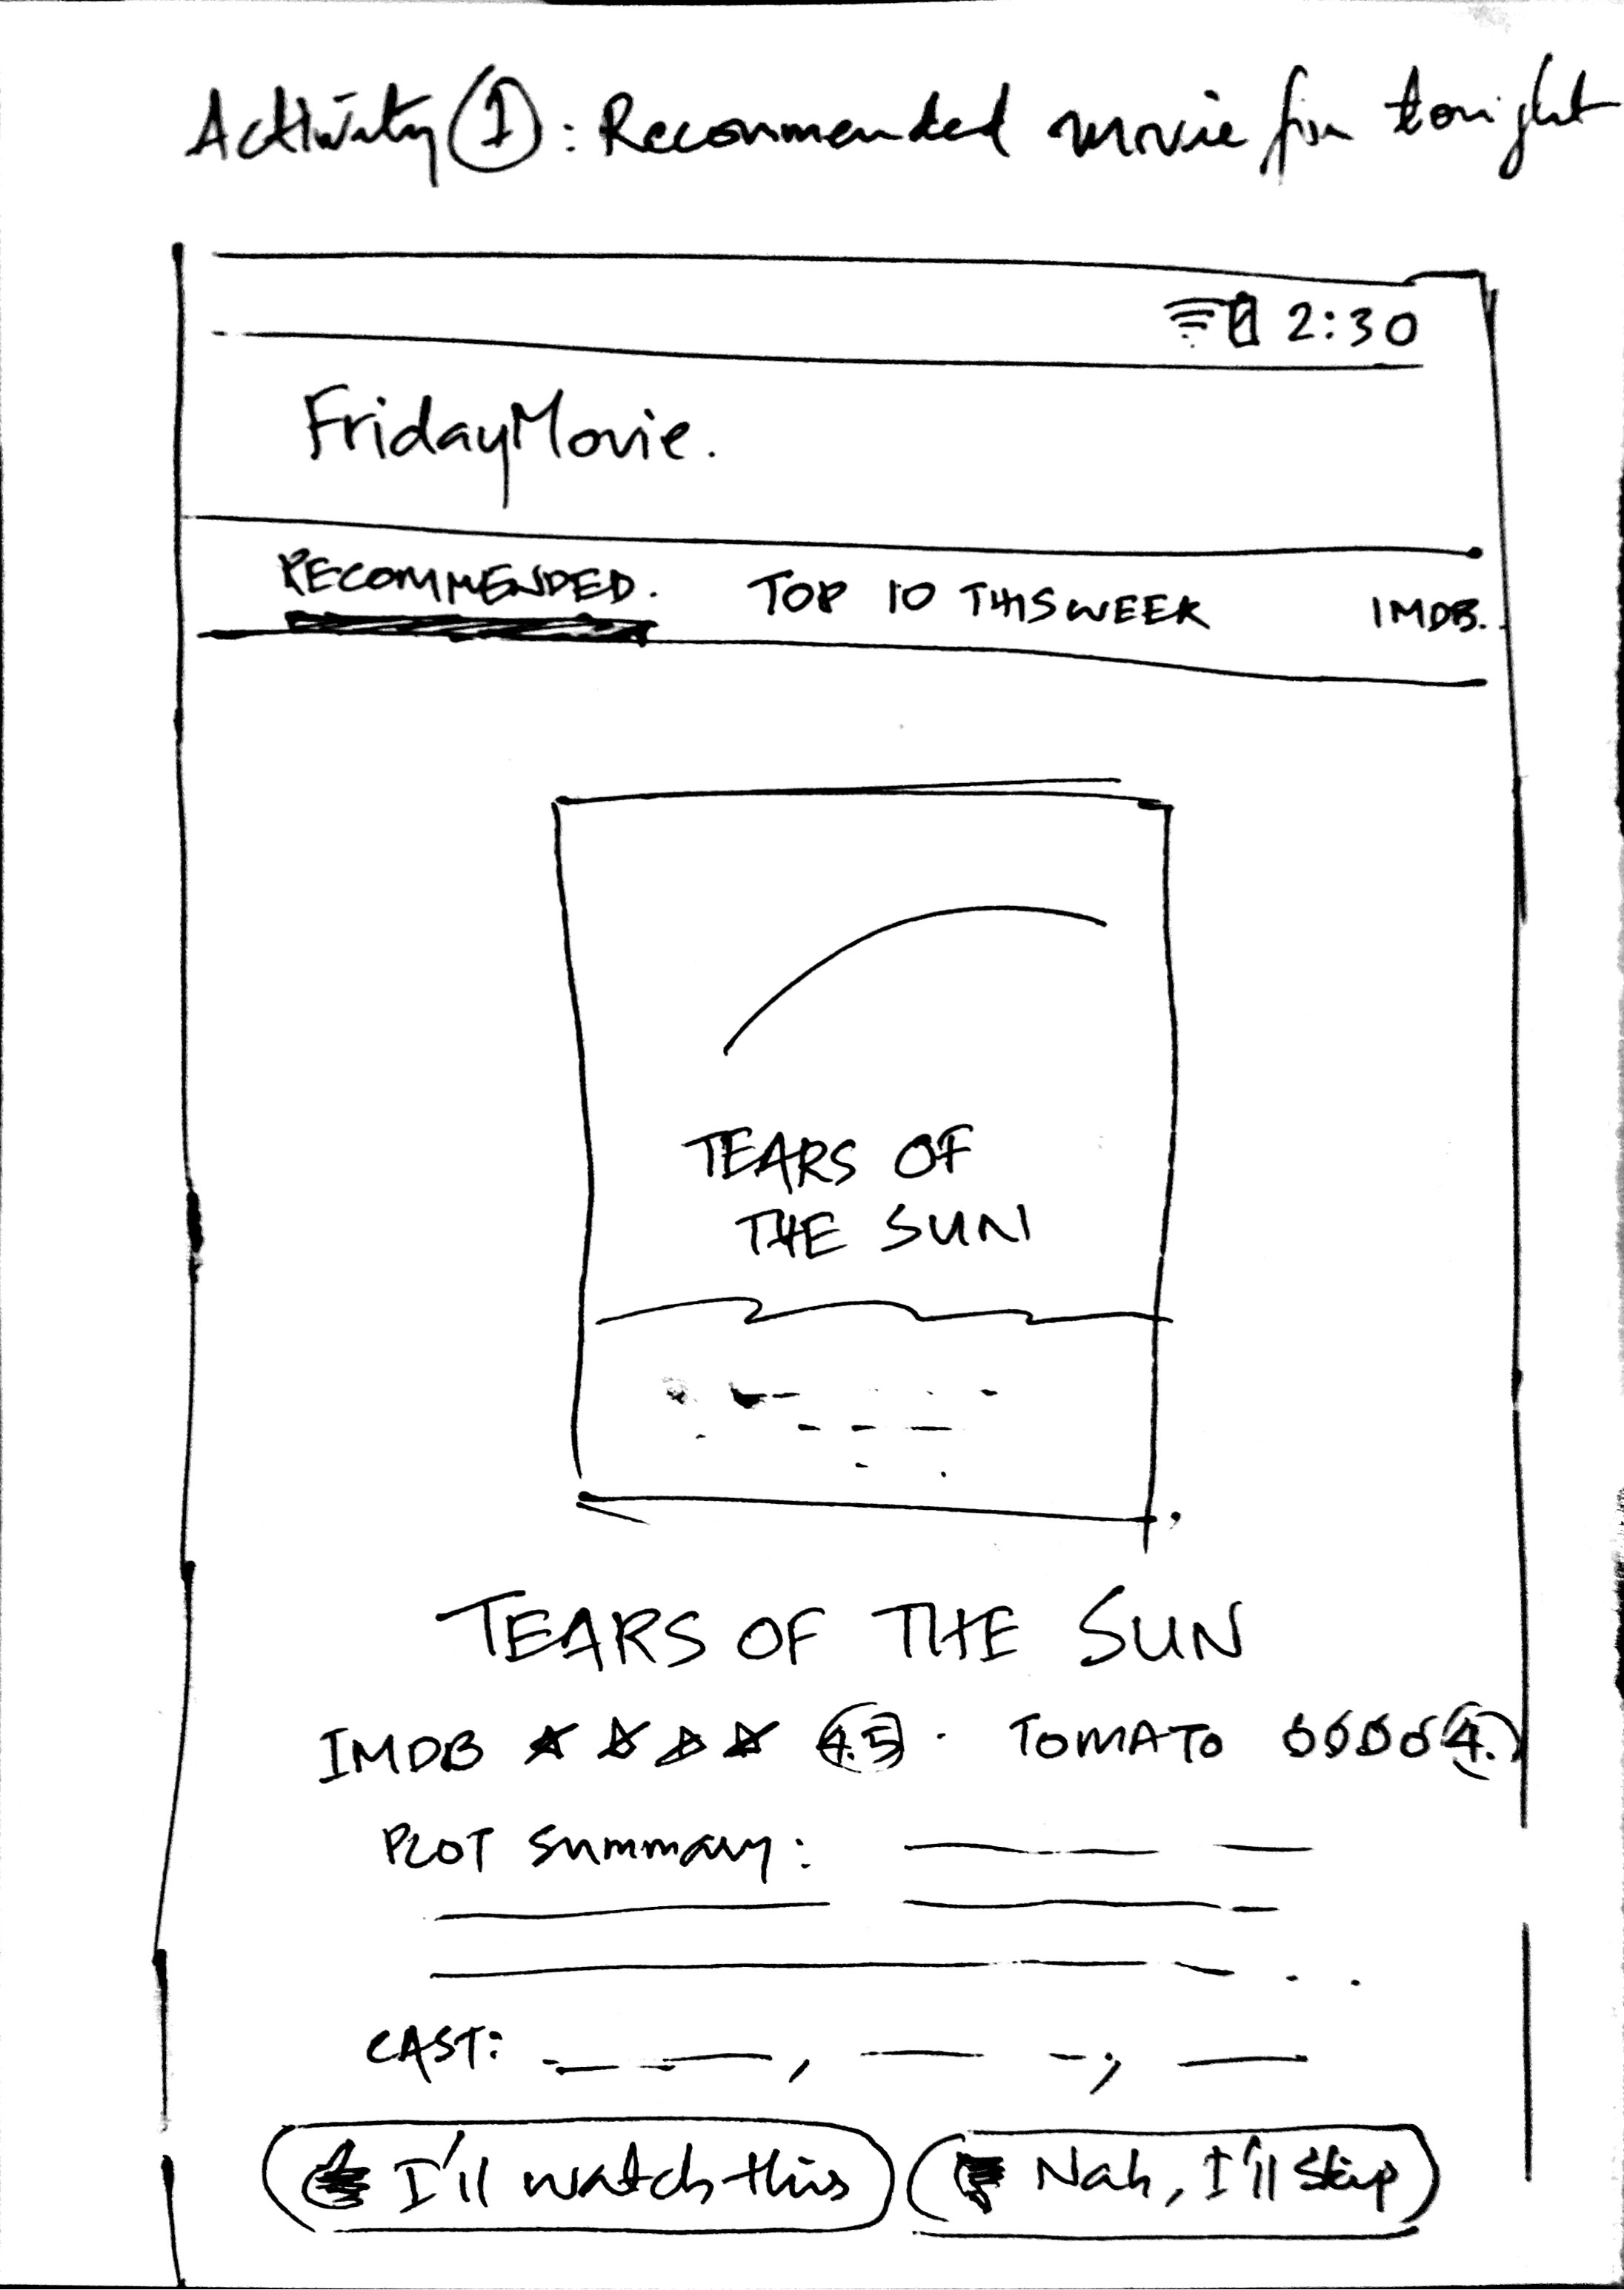 Activity 1: Recommended movie for tonight
2:30
FridayMovie.
RECOMMENDED. TOP 10 THIS WEEK IMDB..
TEARS OF
THE SUN
TEARS OF THE SUN
IMDB ★ ★ ★ ★ 4.5 · TOMATO 4.
PLOT Summary:
CAST:
I'll watch this Nah, I'll skip